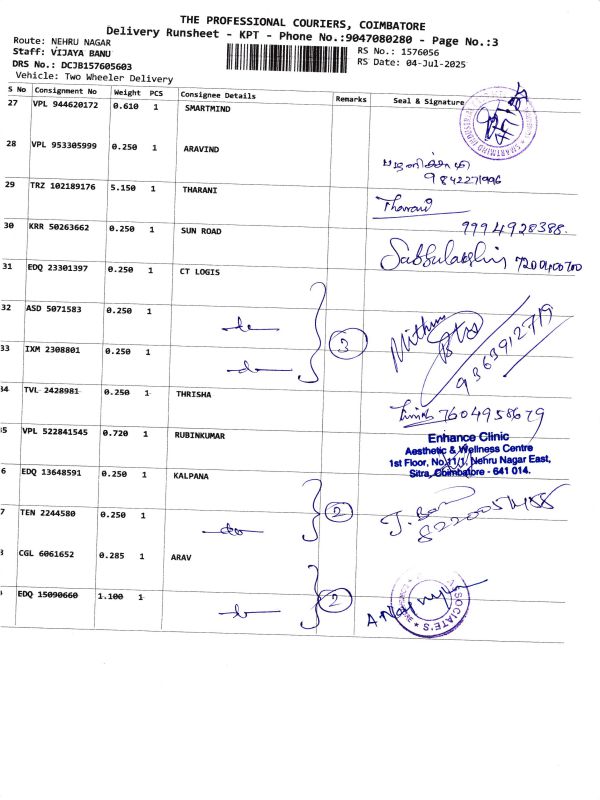 THE PROFESSIONAL COURIERS, COIMBATORE
Delivery Runsheet - KPT - Phone No.:9047080280 - Page No.:3
Route: NEHRU NAGAR
RS No.: 1576056
Staff: VIJAYA BANU
RS Date: 04-Jul-2025
DRS No.: DCJB157605603
Vehicle: Two Wheeler Delivery
S No Consignment No Weight PCS Consignee Details Remarks Seal & Signature
27 VPL 944620172 0.610 1 SMARTMIND
28 VPL 953305999 0.250 1 ARAVIND
9842271996
29 TRZ 102189176 5.150 1 THARANI
Tharani
30 KRR 50263662 0.250 1 SUN ROAD
9994928388.
31 EDQ 23301397 0.250 1 CT LOGIS
7200400700
32 ASD 5071583 0.250 1
3
Mithun
9363912719
33 IXM 2308801 0.250 1
34 TVL 2428981 0.250 1 THRISHA
7604958679
35 VPL 522841545 0.720 1 RUBINKUMAR
Enhance Clinic
Aesthetic & Wellness Centre
1st Floor, No.11/1, Nehru Nagar East,
Sitra, Coimbatore - 641 014.
6 EDQ 13648591 0.250 1 KALPANA
2
7 TEN 2244580 0.250 1 do
CGL 6061652 0.285 1 ARAV
2
EDQ 15090660 1.100 1